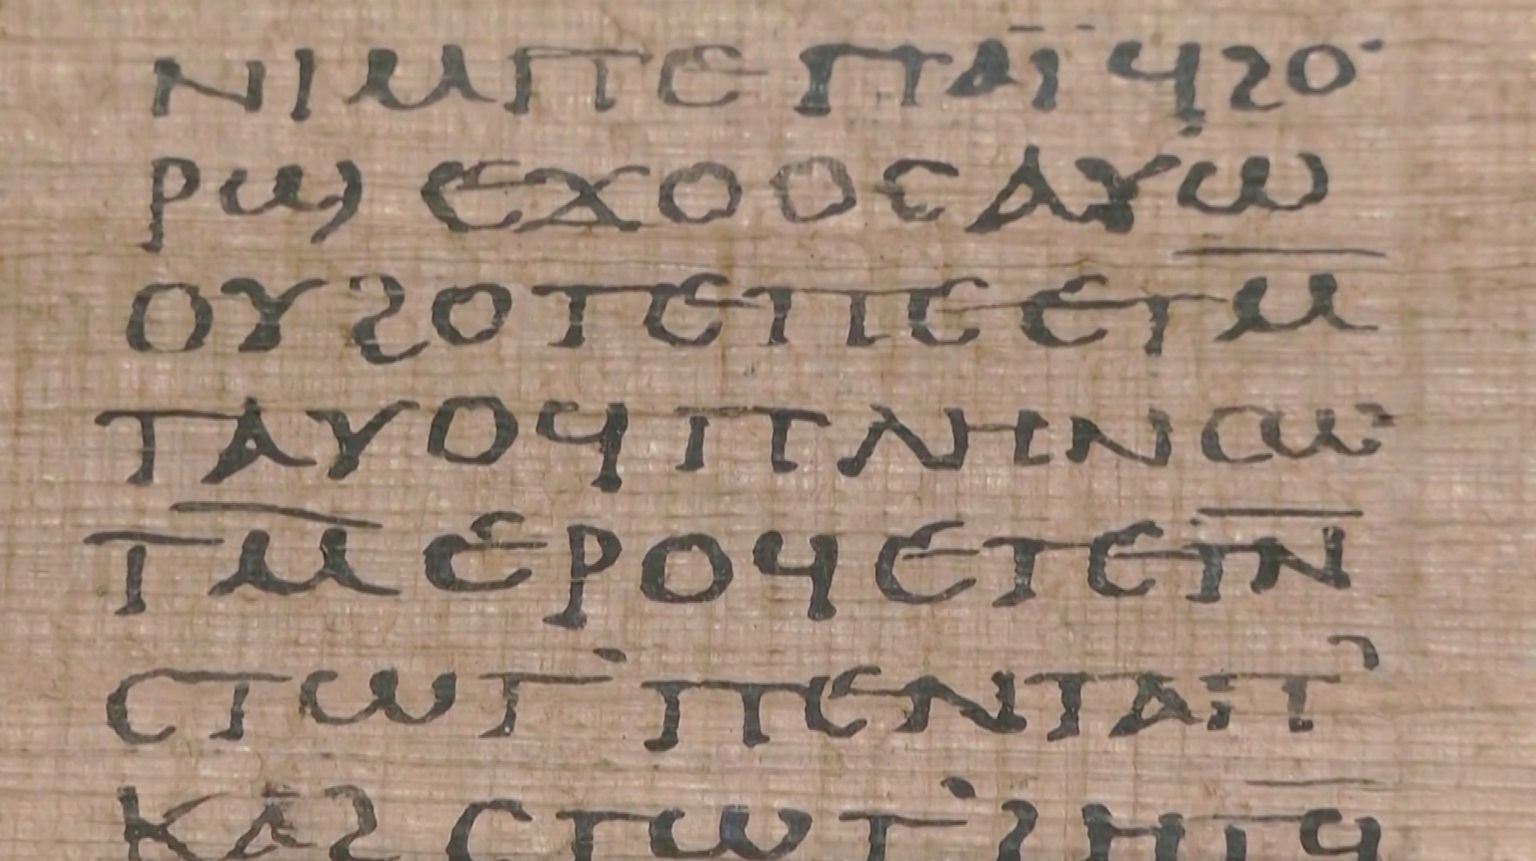 ⲛⲓⲙⲡⲉⲡⲁⲓ̈ϥϩⲟ
ⲣϣⲉϫⲟⲟⲥⲁⲩⲱ
ⲟⲩϩⲟⲧⲉⲡⲉⲉⲧⲙ̄
ⲧⲁⲩⲟϥⲡⲗⲏⲛⲥⲱ
ⲧⲙ̄ⲉⲣⲟϥⲉⲧⲉⲧⲛ̄
ⲥⲧⲱⲧ’ⲡⲉⲛⲧⲁⲡ’
ⲕⲁϩⲥⲧⲱⲧ’ϩⲏⲧϥ̄